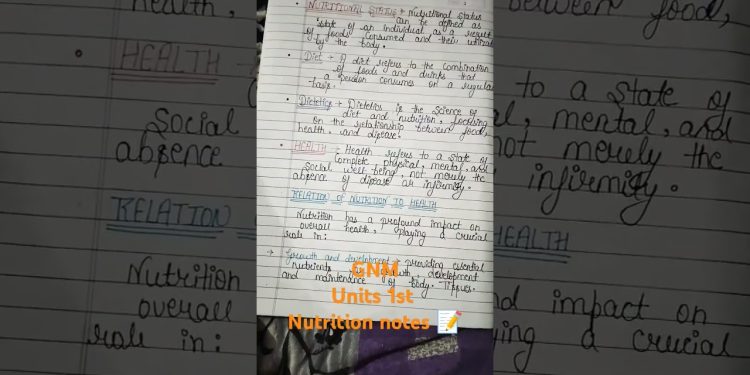 health,
• HEALTH
Social
absence
RELATION
Nutrition
overall
role in:
• NUTRITIONAL STATUS → Nutritional status
can be defined as
state of an individual as a result
of foods consumed and their
by the body.
• Diet → A diet refers to the combination
of foods and drinks that
a person consumes on a regular
basis.
• Dietetics → Dietetics is the science of
diet and nutrition, focusing
on the relationship between food,
health, and disease.
• HEALTH → Health refers to a state of
complete physical, mental, and
social well being, not merely the
absence of disease or infirmity.
RELATION OF NUTRITION TO HEALTH
Nutrition has a profound impact on
overall health, playing a crucial
role in:
→ Growth and development → providing essential
nutrients growth, development
and maintenance of body. Tissues.
GNM
Units 1st
Nutrition notes 📝
between food,
to a state of
al, mental, and
not merely the
infirmity.
HEALTH
nd impact on
ying a crucial